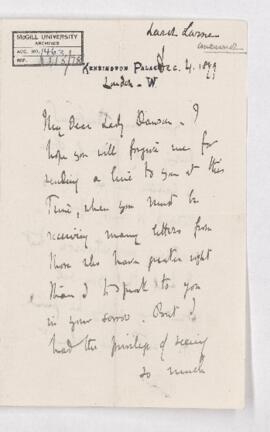 McGILL UNIVERSITY
ARCHIVES
ACC. NO. 1463/
REF.
KENSINGTON PALACE
Dec. 4. 1899
London W
My Dear Lady Dawson - I
hope you will forgive me for
sending a line to you at this
time, when you must be
receiving many letters from
those who have greater right
than I to speak to you
in your sorrow. But I
had the privilege of seeing
so much